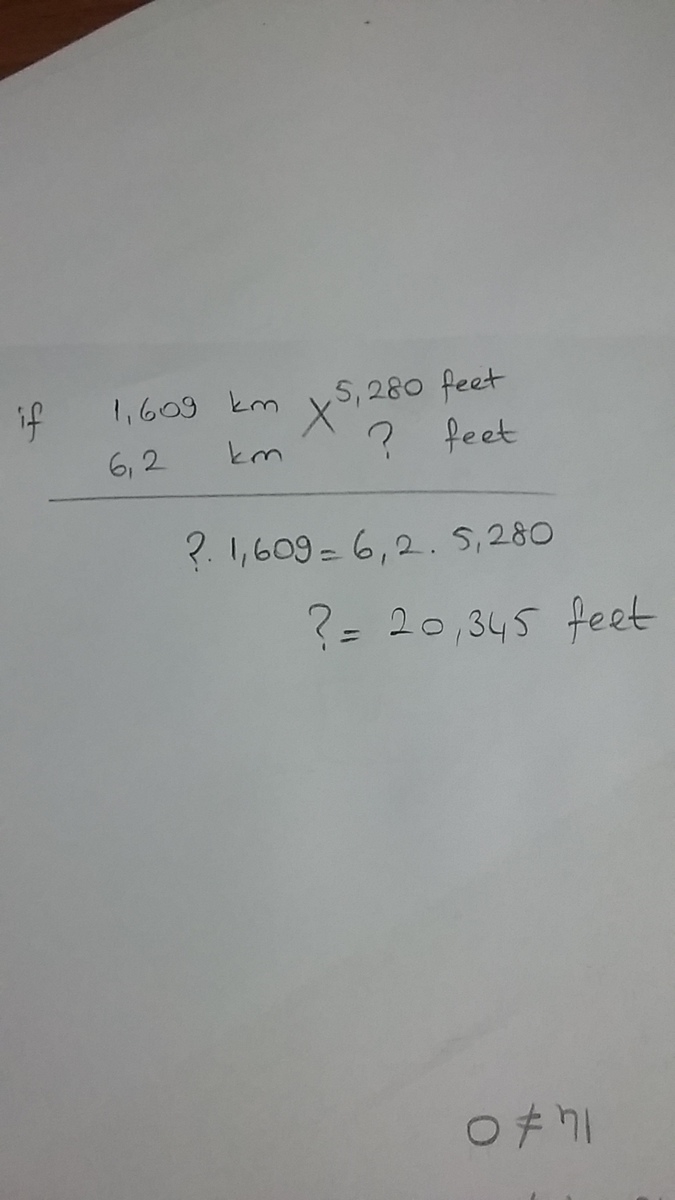 if 1,609 km X 5,280 feet
6,2 km ? feet
?. 1,609 = 6,2. 5,280
? = 20,345 feet